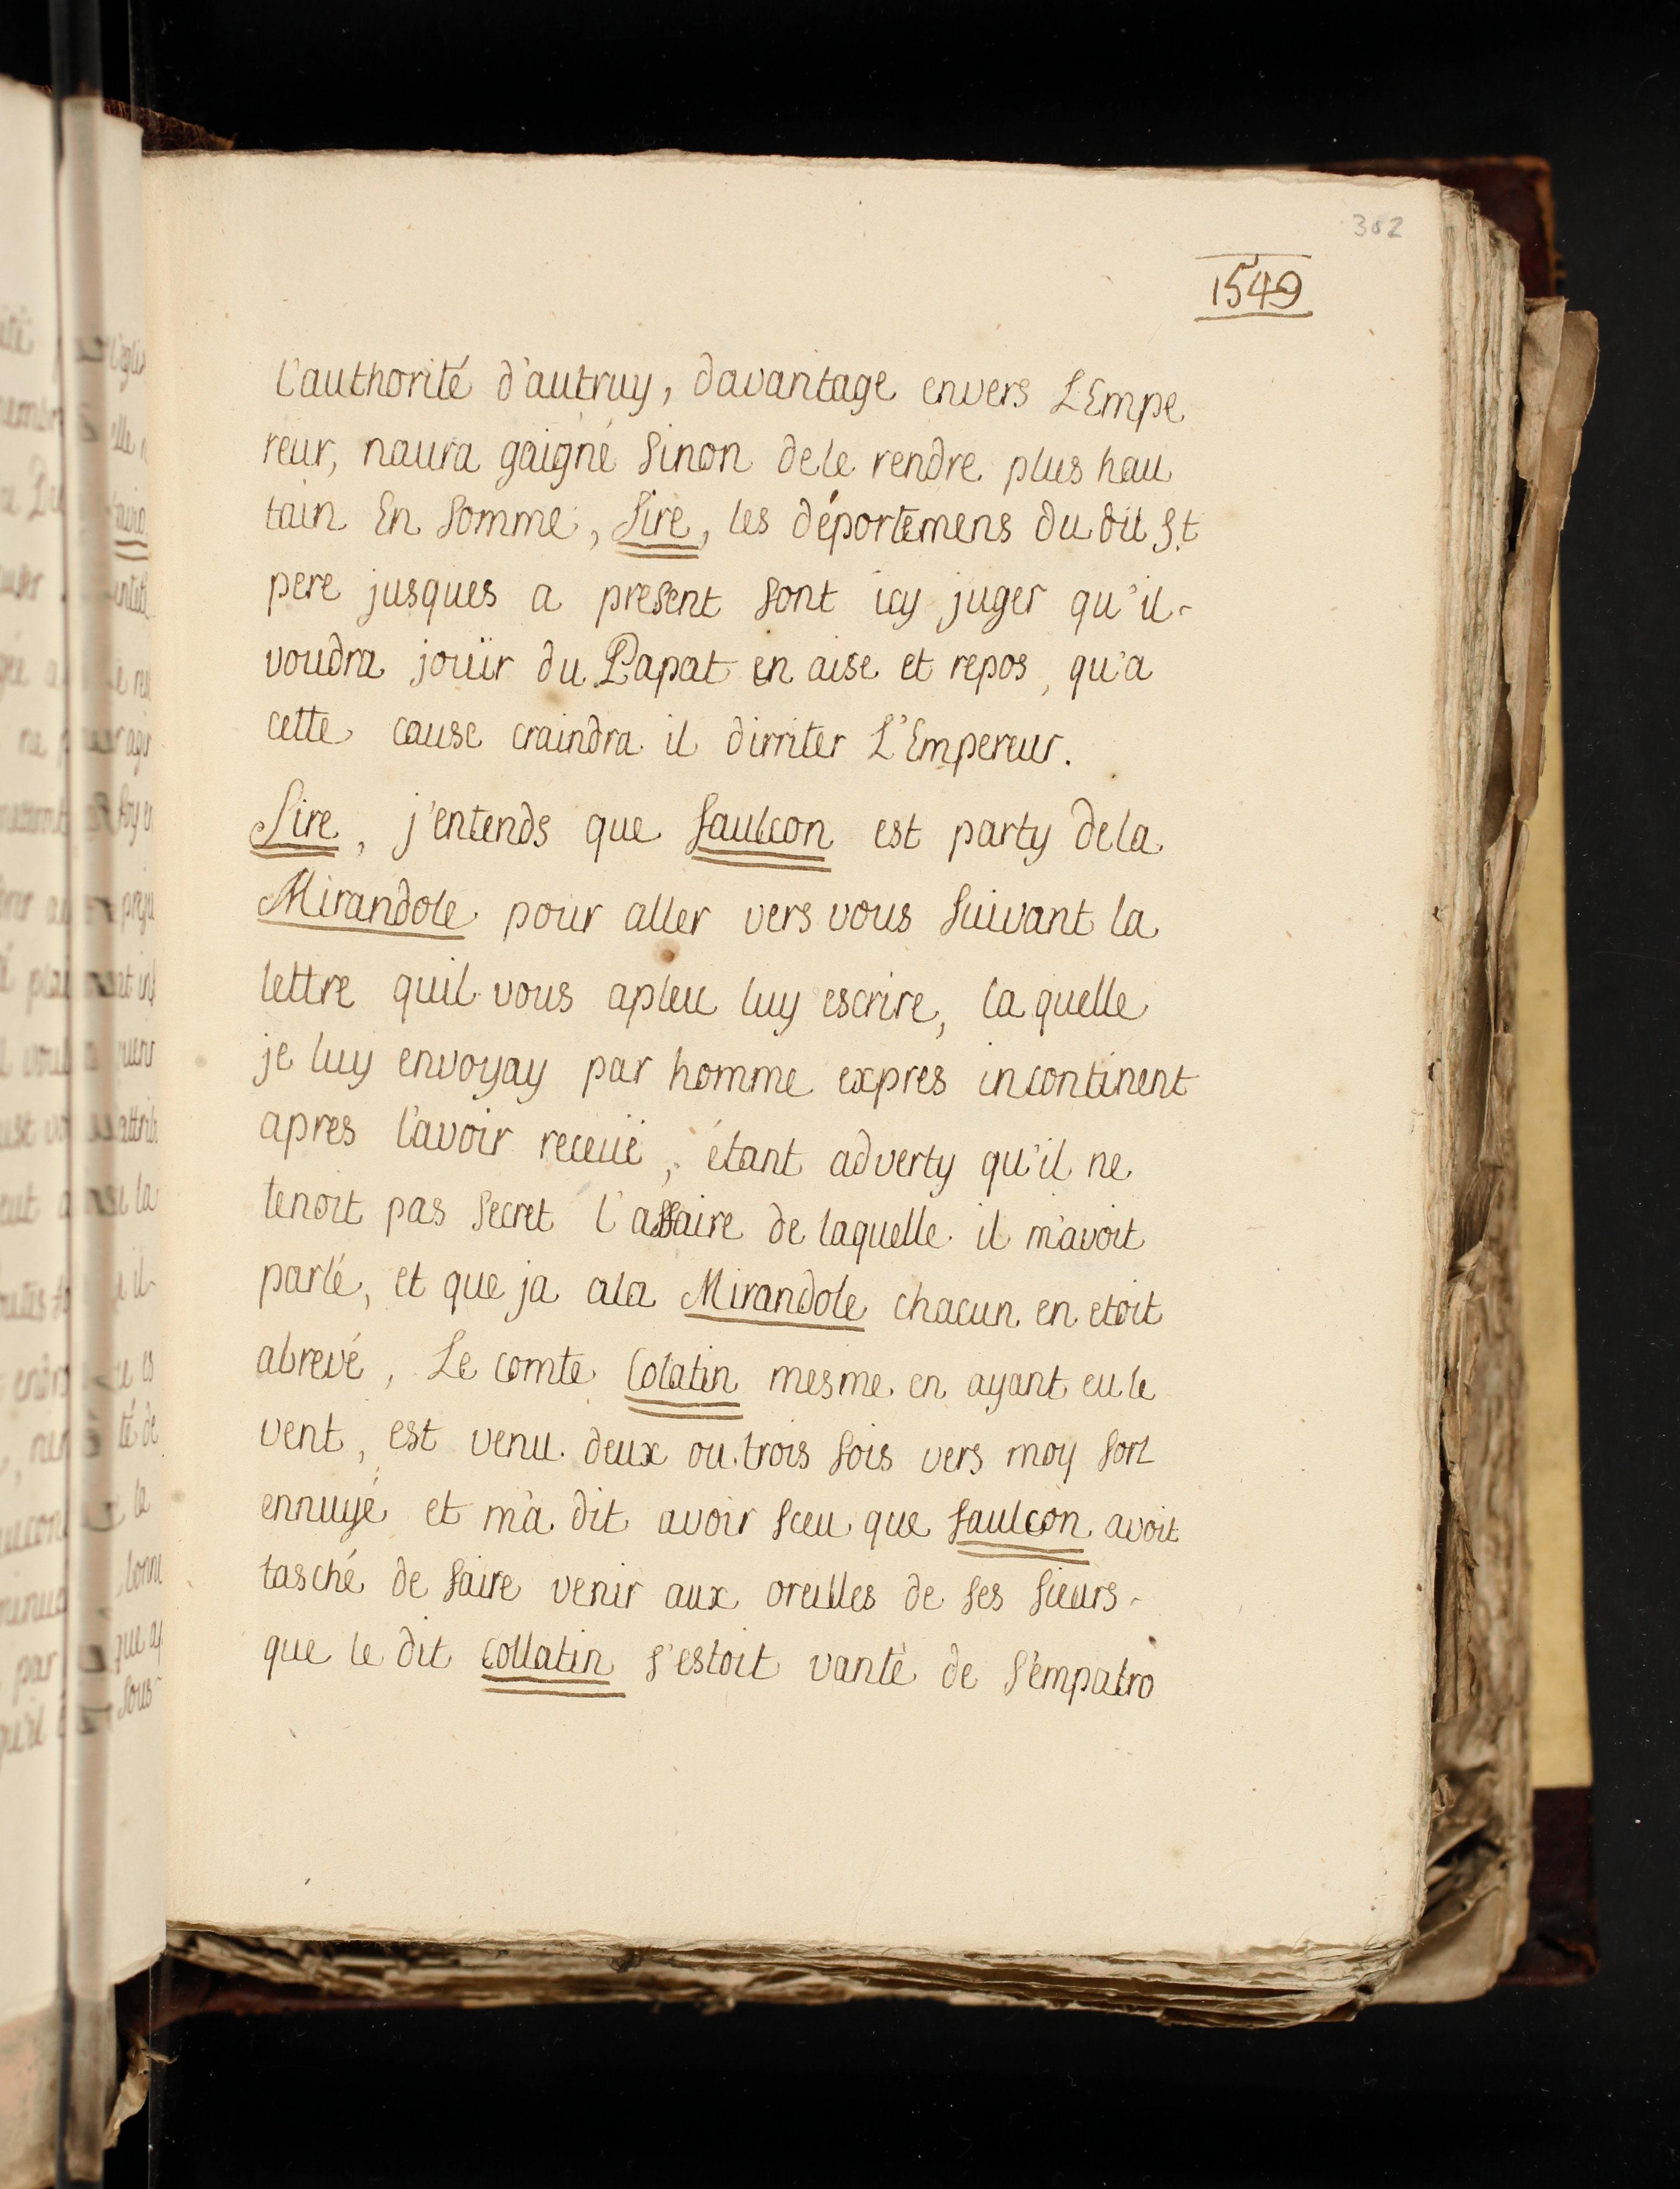 302
1549
l'authorité d'autruy, davantage envers L'Empe
reur, naura gaigné sinon dele rendre plus hau
tain En somme, Sire, les déportemens du dit S.t
pere jusques a present font icy juger qu'il-
voudra jouïr du Papat en aise et repos, qu'a
cette cause craindra il dirriter L'Empereur.
Sire, j'entends que faulcon est party dela
Mirandole pour aller vers vous suivant la
lettre quil vous apleu luy escrire, la quelle
je luy envoyay par homme expres incontinent
apres l'avoir receüe, étant adverty qu'il ne
tenoit pas secret l'affaire de laquelle il m'avoit
parlé, et que ja ala Mirandole chacun en etoit
abrevé, Le comte Colatin mesme en ayant eu le
vent, est venu deux ou trois fois vers moy fort
ennuyé et m'a dit avoir sceu que faulcon avoit
tasché de faire venir aux oreilles de ses sieurs-
que le dit Collatin s'estoit vanté de s'empatro